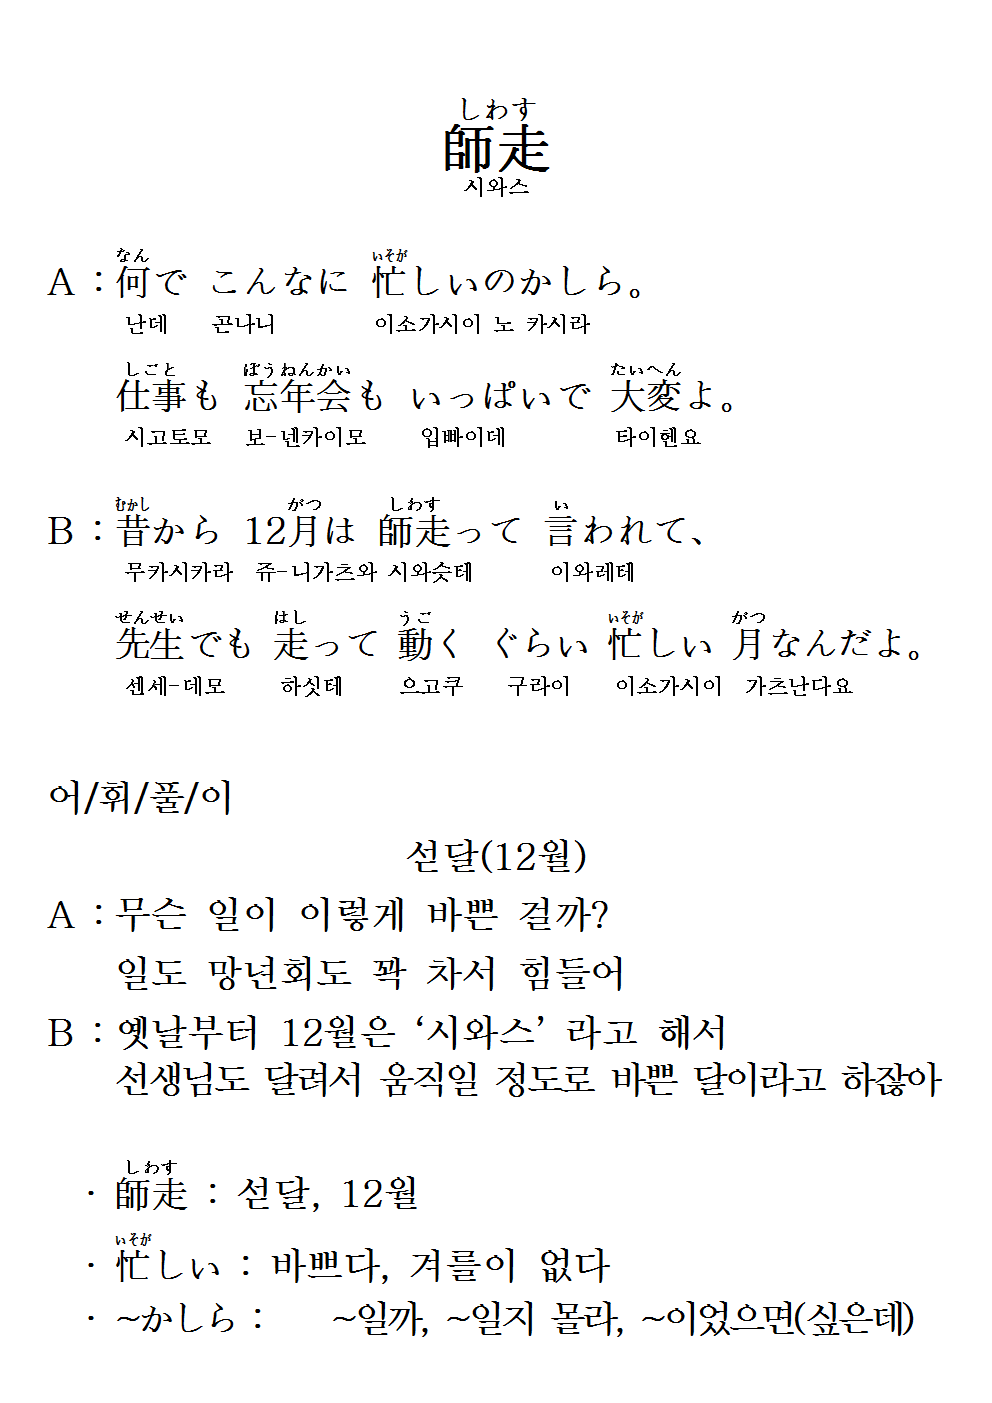 しわす
師走
시와스
なん いそが
A : 何で こんなに 忙しいのかしら。
난데 곤나니 이소가시이 노 카시라
しごと ぼうねんかい たいへん
仕事も 忘年会も いっぱいで 大変よ。
시고토모 보-넨카이모 입빠이데 타이헨요
むかし がつ しわす い
B : 昔から 12月は 師走って 言われて、
무카시카라 쥬-니가츠와 시와슷테 이와레테
せんせい はし うご いそが がつ
先生でも 走って 動く ぐらい 忙しい 月なんだよ。
센세-데모 하싯테 으고쿠 구라이 이소가시이 가츠난다요
어/휘/풀/이
섣달(12월)
A : 무슨 일이 이렇게 바쁜 걸까?
일도 망년회도 꽉 차서 힘들어
B : 옛날부터 12월은 ‘시와스’ 라고 해서
선생님도 달려서 움직일 정도로 바쁜 달이라고 하잖아
しわす
· 師走 : 섣달, 12월
いそが
· 忙しい : 바쁘다, 겨를이 없다
· ~かしら : ~일까, ~일지 몰라, ~이었으면(싶은데)